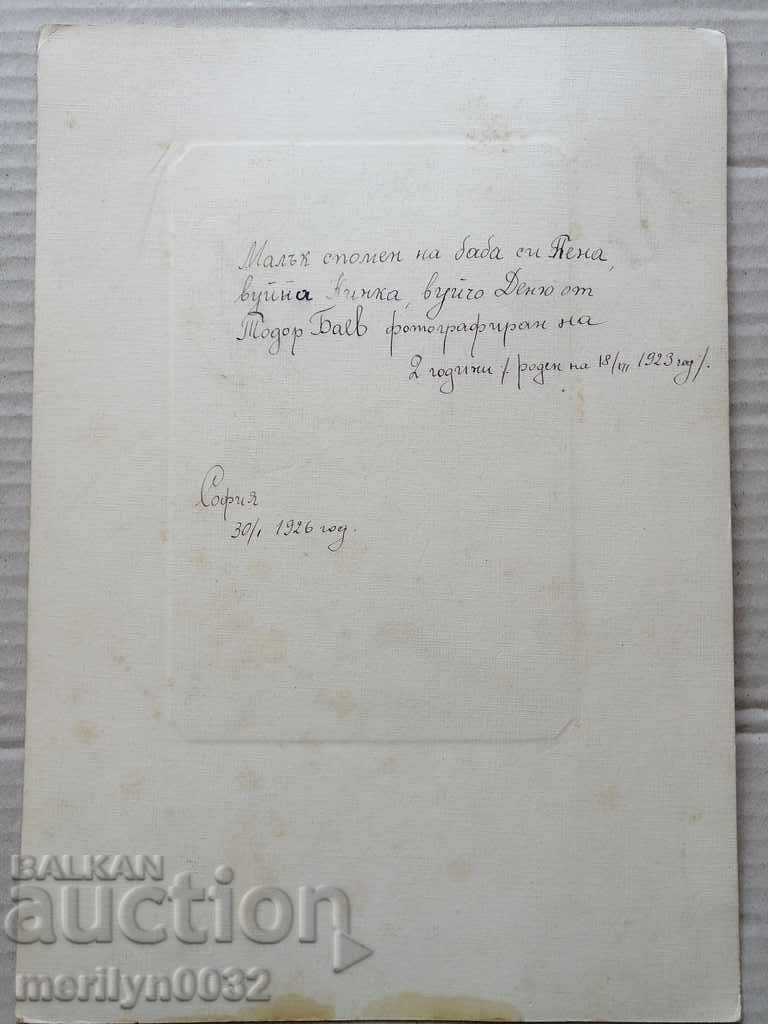 Малък спомен на баба си Пена,
вуйна Нинка, вуйчо Деню от
Тодор Баев фотографиран на
2 години / роден на 18/VII 1923 год/.
София
30/I 1926 год.
BALKAN
auction
merilyn0032